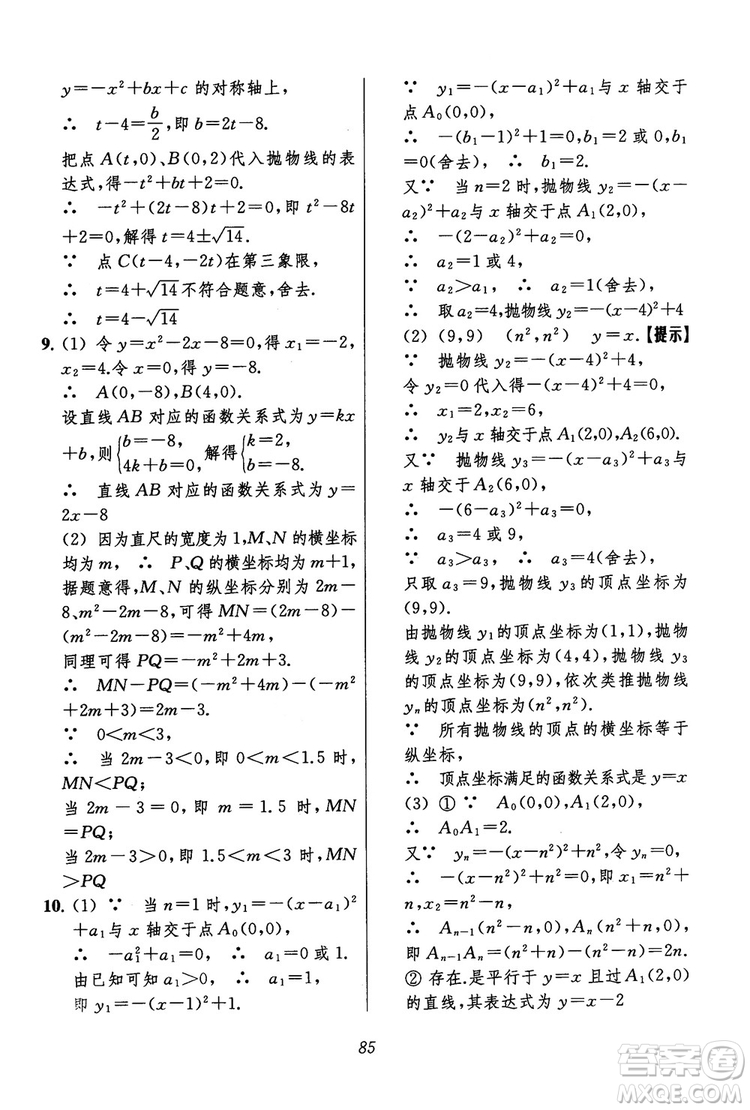 y=-x²+bx+c 的对称轴上，
∴ t-4=b/2,即 b=2t-8.
把点 A(t,0)、B(0,2)代入抛物线的表
达式,得-t²+bt+2=0.
∴ -t²+(2t-8)t+2=0,即 t²-8t
+2=0,解得 t=4±√14.
∵ 点 C(t-4,-2t)在第三象限，
∴ t=4+√14不符合题意,舍去.
∴ t=4-√14
9. (1) 令 y=x²-2x-8=0,得 x₁=-2,
x₂=4.令 x=0,得 y=-8.
∴ A(0,-8),B(4,0).
设直线 AB 对应的函数关系式为 y=kx
+b,则{b=-8, 4k+b=0, 解得{k=2, b=-8.
∴ 直线 AB 对应的函数关系式为 y=
2x-8
(2) 因为直尺的宽度为 1,M、N 的横坐标
均为 m, ∴ P、Q 的横坐标均为 m+1,
据题意得,M、N 的纵坐标分别为 2m-
8、m²-2m-8,可得 MN=(2m-8)-
(m²-2m-8)=-m²+4m,
同理可得 PQ=-m²+2m+3,
∴ MN-PQ=(-m²+4m)-(-m²+
2m+3)=2m-3.
∵ 0<m<3,
∴ 当 2m-3<0,即 0<m<1.5 时,
MN<PQ;
当 2m-3=0,即 m=1.5 时,MN
=PQ;
当 2m-3>0,即 1.5<m<3 时,MN
>PQ
10. (1) ∵ 当 n=1时,y₁=-(x-a₁)²
+a₁与 x 轴交于点 A₀(0,0),
∴ -a₁²+a₁=0, ∴ a₁=0 或 1.
由已知可知 a₁>0, ∴ a₁=1,
即 y₁=-(x-1)²+1.
∵ y₁=-(x-a₁)²+a₁与 x 轴交于
点 A₀(0,0),
∴ -(b₁-1)²+1=0, ∴ b₁=2或0,b₁
=0(舍去), ∴ b₁=2.
又∵ 当 n=2 时,抛物线 y₂=-(x-
a₂)²+a₂与 x 轴交于点 A₁(2,0),
∴ -(2-a₂)²+a₂=0,
∴ a₂=1或 4,
∵ a₂>a₁, ∴ a₂=1(舍去),
∴ 取 a₂=4,抛物线 y₂=-(x-4)²+4
(2) (9,9) (n²,n²) y=x.【提示】
∵ 抛物线 y₂=-(x-4)²+4,
令 y₂=0 代入得-(x-4)²+4=0,
∴ x₁=2,x₂=6,
∴ y₂与 x 轴交于点 A₁(2,0)、A₂(6,0).
又∵ 抛物线 y₃=-(x-a₃)²+a₃与
x 轴交于 A₂(6,0),
∴ -(6-a₃)²+a₃=0,
∴ a₃=4或 9,
∵ a₃>a₃, ∴ a₃=4(舍去),
只取 a₃=9,抛物线 y₃的顶点坐标为
(9,9).
由抛物线 y₁的顶点坐标为(1,1),抛物
线 y₂的顶点坐标为(4,4),抛物线 y₃
的顶点坐标为(9,9),依次类推抛物线
yₙ的顶点坐标为(n²,n²).
∵ 所有抛物线的顶点的横坐标等于
纵坐标,
∴ 顶点坐标满足的函数关系式是 y=x
(3) ① ∵ A₀(0,0),A₁(2,0),
∴ A₀A₁=2.
又∵ yₙ=-(x-n²)²+n²,令 yₙ=0,
∴ -(x-n²)²+n²=0,即 x₁=n²+n,
x₂=n²-n,
∴ Aₙ₋₁(n²-n,0),Aₙ(n²+n,0),
即 Aₙ₋₁Aₙ=(n²+n)-(n²-n)=2n.
② 存在.是平行于 y=x 且过A₁(2,0)
的直线,其表达式为 y=x-2
85
答案圈
MXQE.COM